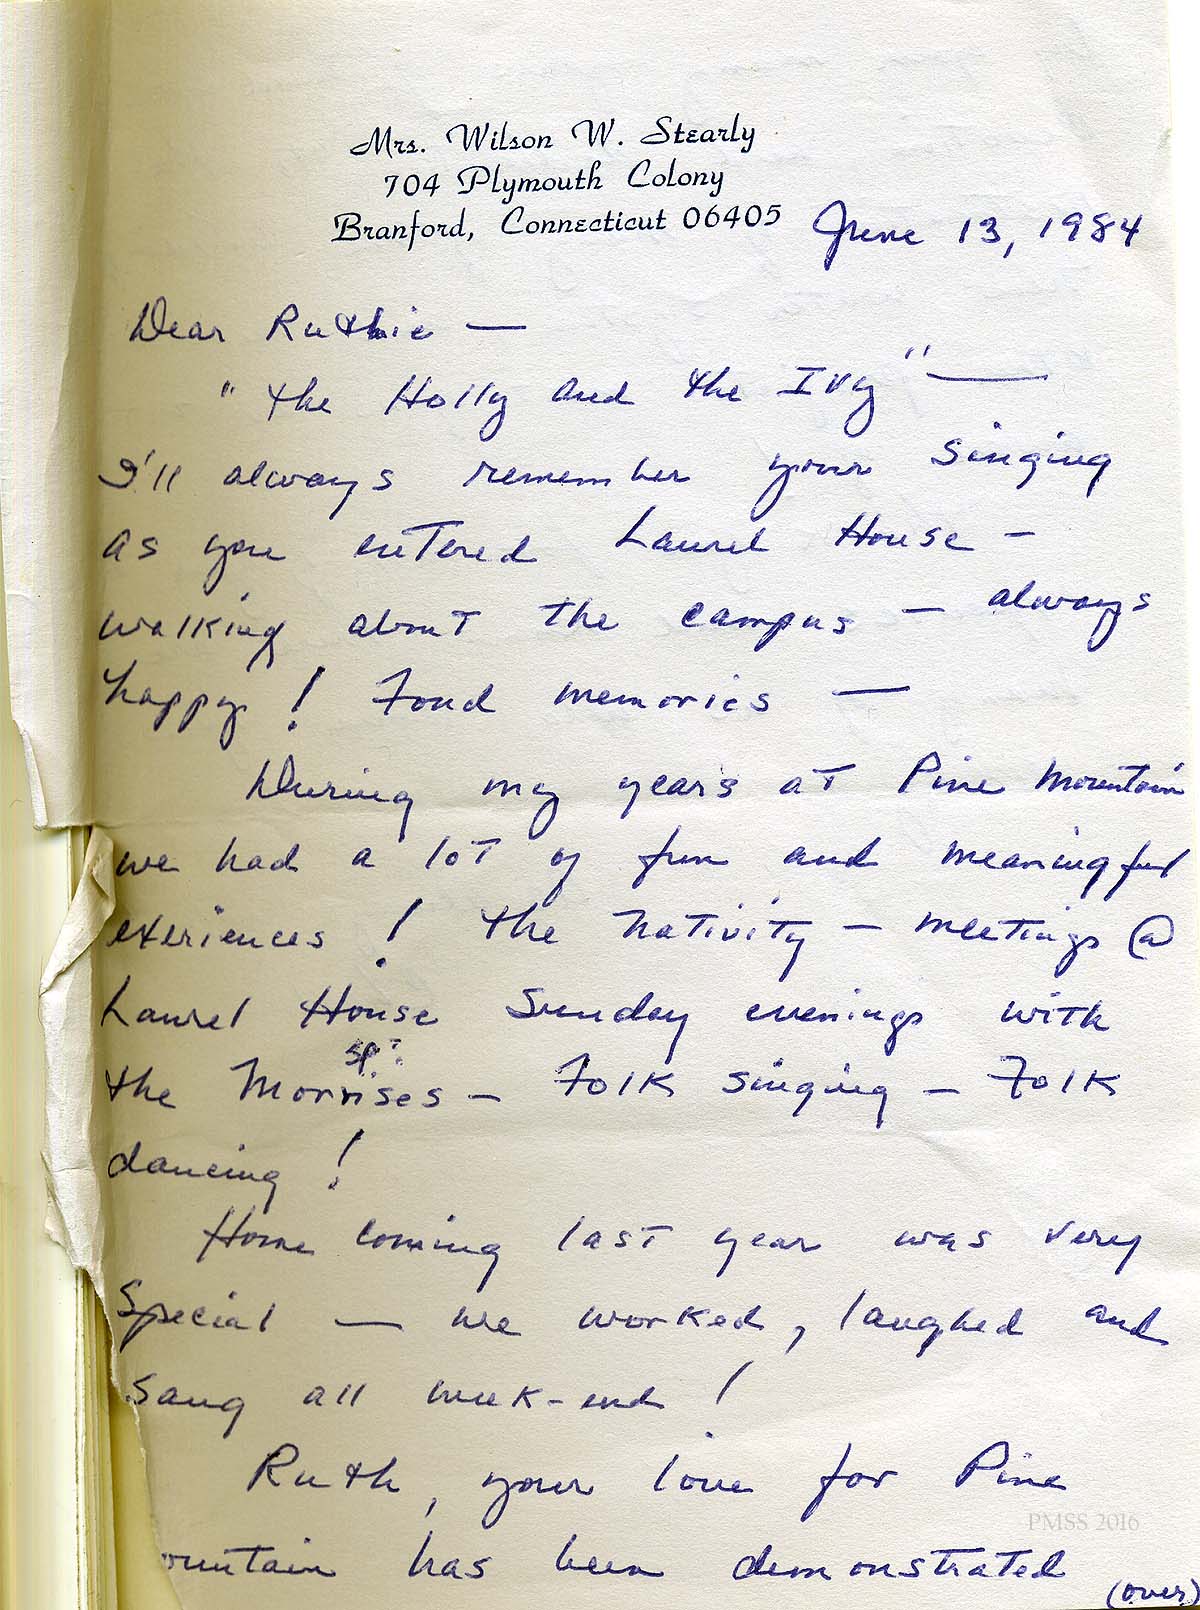 Mrs. Wilson W. Stearly
704 Plymouth Colony
Branford, Connecticut 06405
June 13, 1984
Dear Ruthie —
" the Holly and the Ivy" —
I'll always remember your singing
as you entered Laurel House —
walking about the campus — always
happy! Fond memories —
During my years at Pine Mountain
we had a lot of fun and meaningful
exeriences! The Nativity — meetings @
Laurel House Sunday evenings with
sp?
the Morrises — Folk singing — Folk
dancing!
Home coming last year was very
Special — we worked, laughed and
Sang all week-end!
Ruth, your love for Pine
PMSS 2016
ountain has been demonstrated
(over)